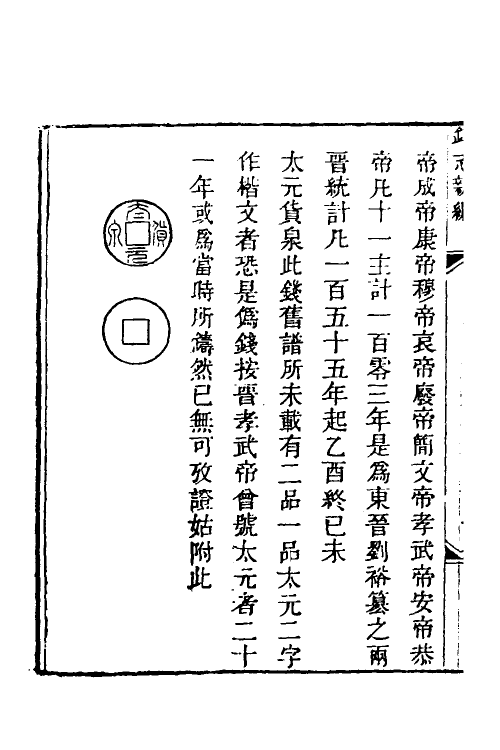 錢志新編
帝成帝康帝穆帝哀帝廢帝簡文帝孝武帝安帝恭
帝凡十一主計一百零三年是爲東晉劉裕篡之兩
晉統計凡一百五十五年起乙酉終已未
太元貨泉此錢舊譜所未載有二品一品太元二字
作楷文者恐是僞錢按晉孝武帝曾號太元者二十
一年或爲當時所鑄然已無可攷證姑附此